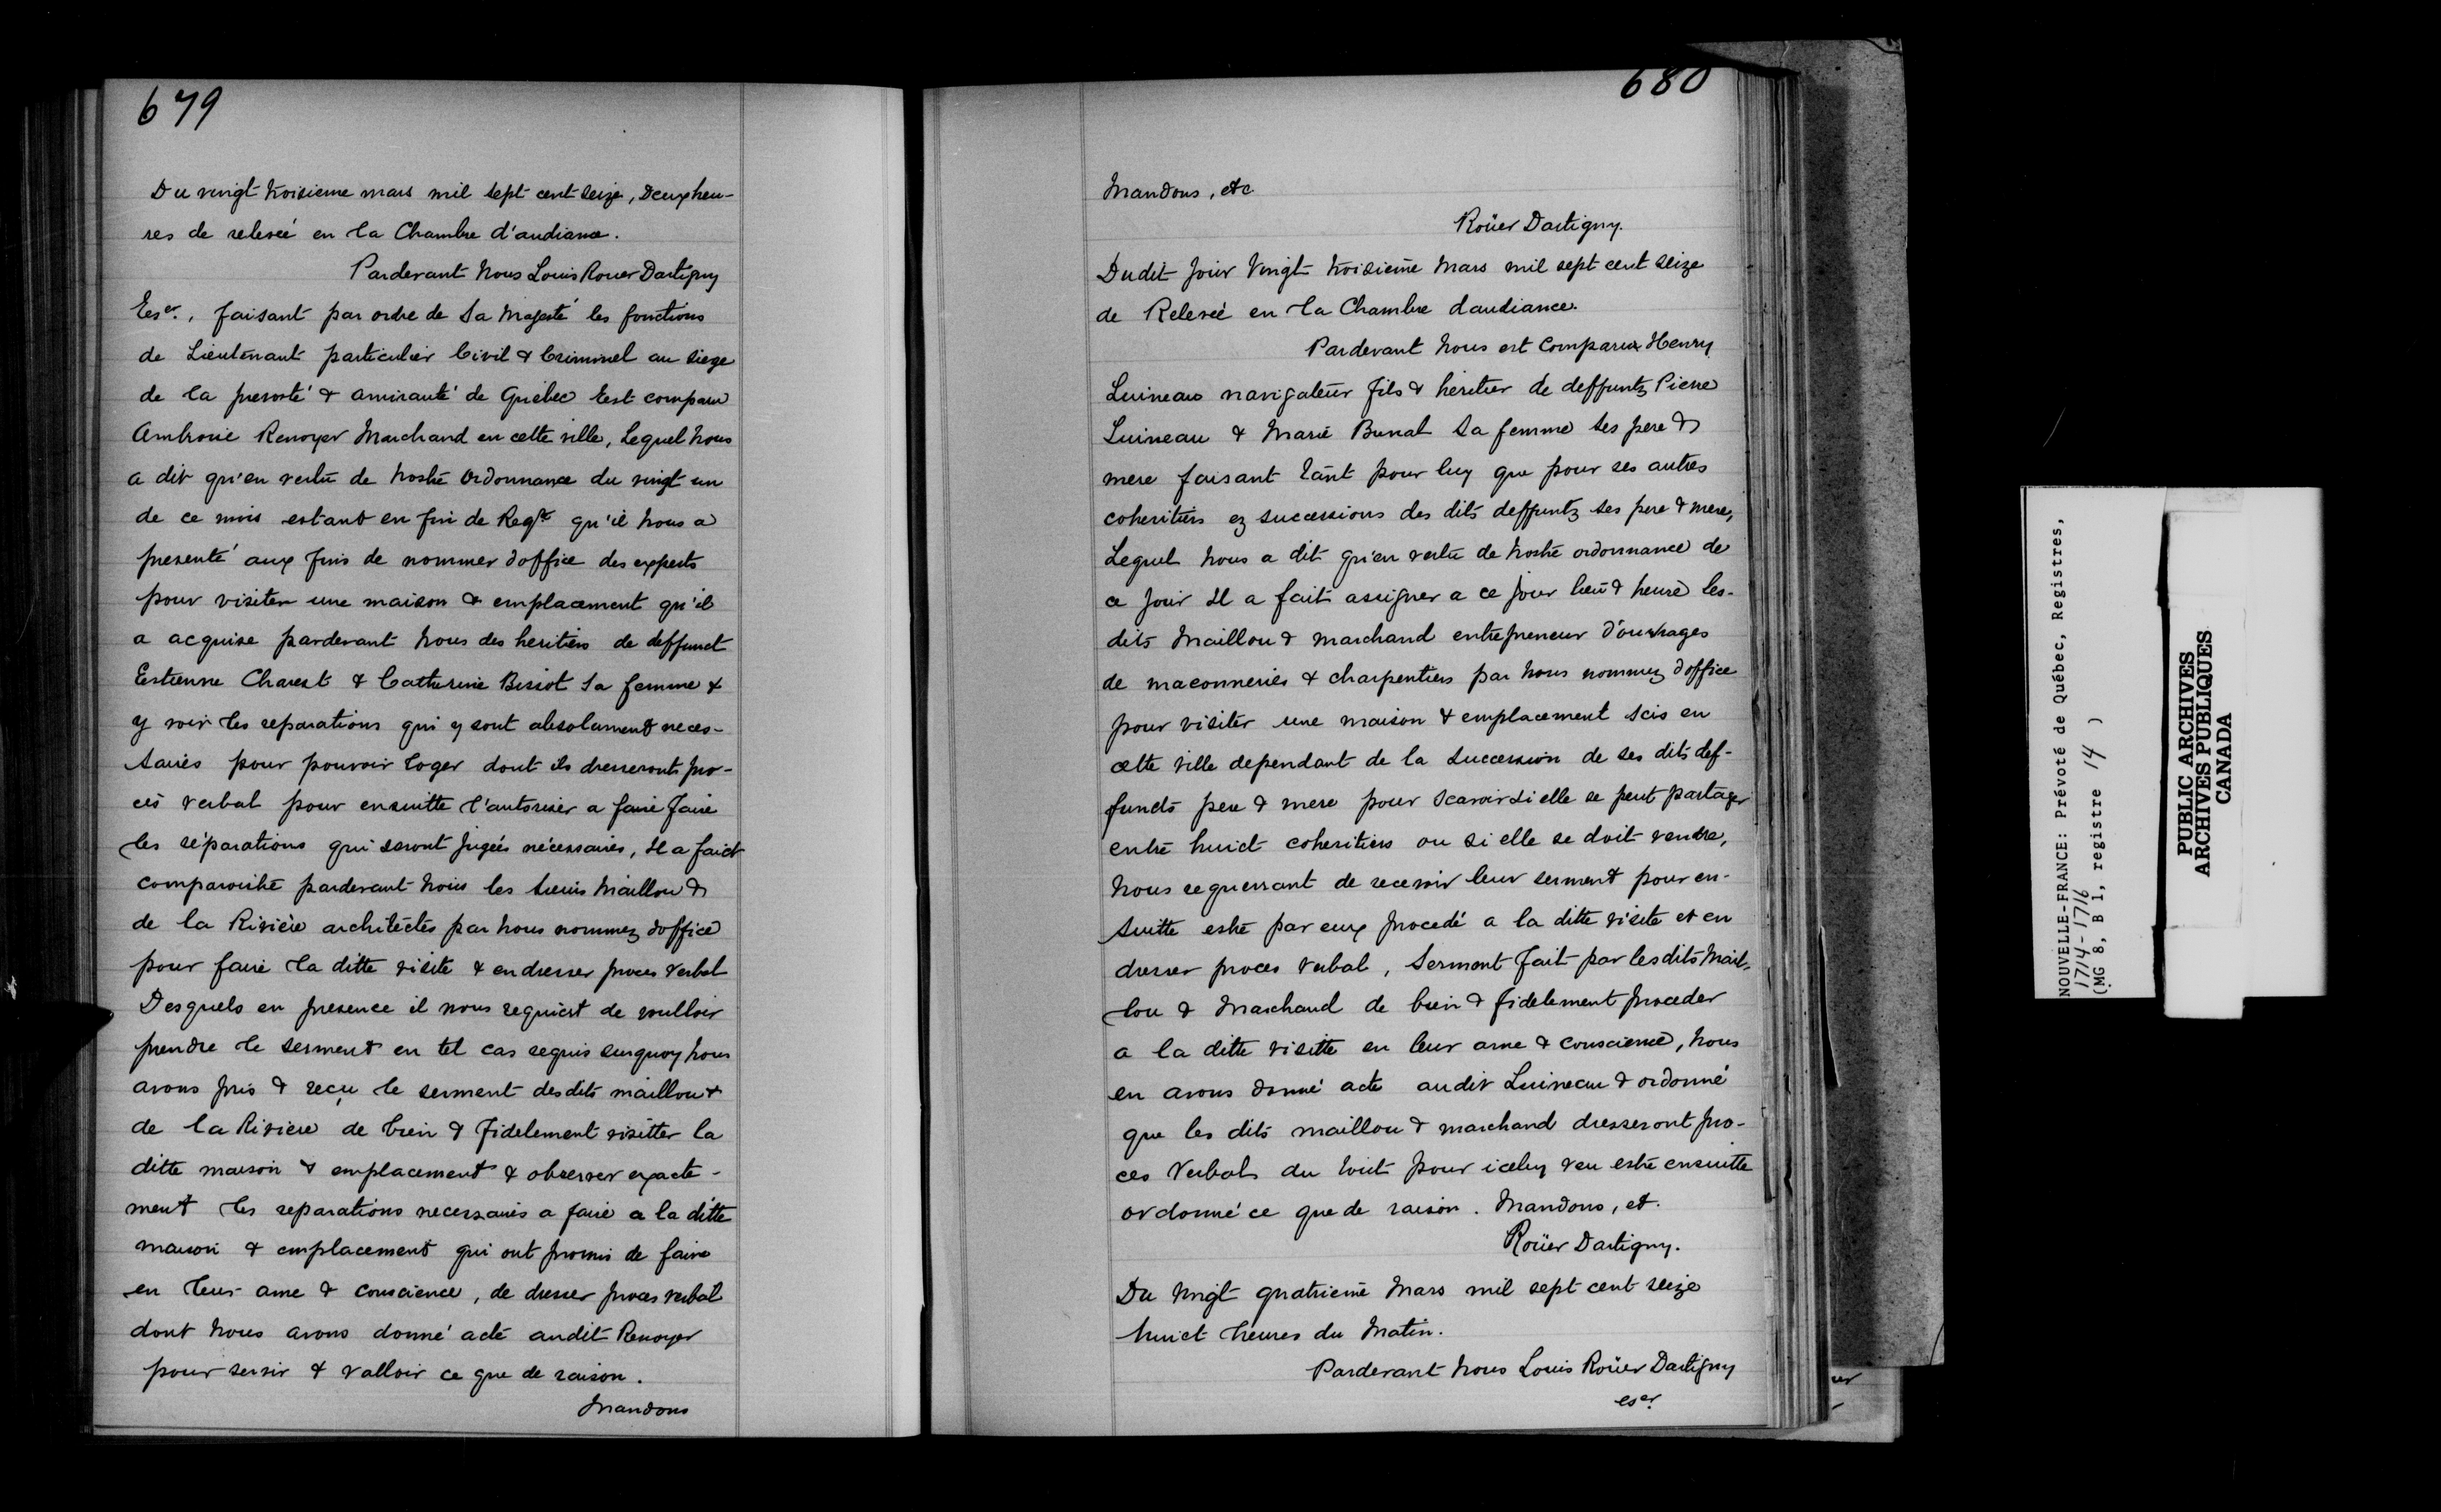 679
Du vingt troisieme mars mil sept cent seize, Deux heu-
res de relevée en la Chambre d'audiance.
Pardevant Nous Louis Rouer Dartigny
Eser., faisant par ordre de Sa Majesté les fonctions
de Lieutenant particulier Civil & Criminel au siege
de la prevosté & amirauté de Québec Est comparu
Ambroise Renoyer Marchand en cette ville, Lequel Nous
a dit qu'en vertu de Nostre Ordonnance du vingt un
de ce mois estant en fin de Reqte qu'il Nous a
presenté aux fins de nommer d'office des experts
pour visiter une maison & emplacement qu'il
a acquise pardevant Nous des heritiers de deffunct
Estienne Charest & Catherine Bissot Sa femme &
y voir les reparations qui y sont absolument neces-
saires pour pouvoir loger dont ils dresseront pro-
cès verbal pour ensuitte l'autoriser a faire faire
les réparations qui seront jugées nécessaires, Il a faict
comparoistre pardevant Nous les Sieurs Maillou &
de la Rivière architectes par Nous nommez d'office
pour faire la ditte visite & en dresser proces verbal
Desquels en presence il nous requiert de voulloir
prendre le serment en tel cas requis surquoy Nous
avons pris & reçu le serment desdits maillou &
de la Riviere de bien & fidelement visitter la
ditte maison & emplacement & observer exacte-
ment les reparations necessaires a faire a la ditte
maison & emplacement qui ont promis de faire
en leur ame & conscience, de dresser proces verbal
dont Nous avons donné acte audit Renoyer
pour servir & valloir ce que de raison.
Mandons
680
Mandons, etc
Roüer Dartigny.
Dudit jour Vingt troisieme Mars mil sept cent seize
de Relevée en la Chambre daudiance.
Pardevant Nous est Comparu Henry
Luineau navigateur fils & heritier de deffuntz Pierre
Luineau & Marie Bunal Sa femme ses pere &
mere faisant tant pour luy que pour ses autres
coheritiers ez successions des dits deffuntz ses pere & mere,
Lequel Nous a dit qu'en vertu de Nostre ordonnance de
ce jour Il a fait assigner a ce jour lieu & heure les-
dits Maillou & marchand entrepreneur d'ouvrages
de maconneries & charpentiers par Nous nommez d'office
pour visiter une maison & emplacement scis en
cette ville dependant de la Succession de ses dits def-
functs pere & mere pour scavoir si elle se peut partager
entre huict coheritiers ou si elle se doit vendre,
Nous requerrant de recevoir leur serment pour en-
suitte estre par eux procedé a la ditte visite et en
dresser proces verbal, Serment fait par lesdits Mail-
lou & Marchand de bien & fidelement proceder
a la ditte visitte en leur ame & conscience, Nous
en avons donné acte audit Luineau & ordonné
que les dits maillou & marchand dresseront pro-
ces Verbal du tout pour iceluy veu estre ensuitte
ordonné ce que de raison. Mandons, et.
Roüer Dartigny.
Du Vingt quatrieme Mars mil sept cent seize
huict heures du Matin.
Pardevant Nous Louis Roüer Dartigny
eser.
NOUVELLE-FRANCE: Prévoté de Québec, Registres,
1714-1716
(MG 8, B 1, registre 14 )
PUBLIC ARCHIVES
ARCHIVES PUBLIQUES
CANADA